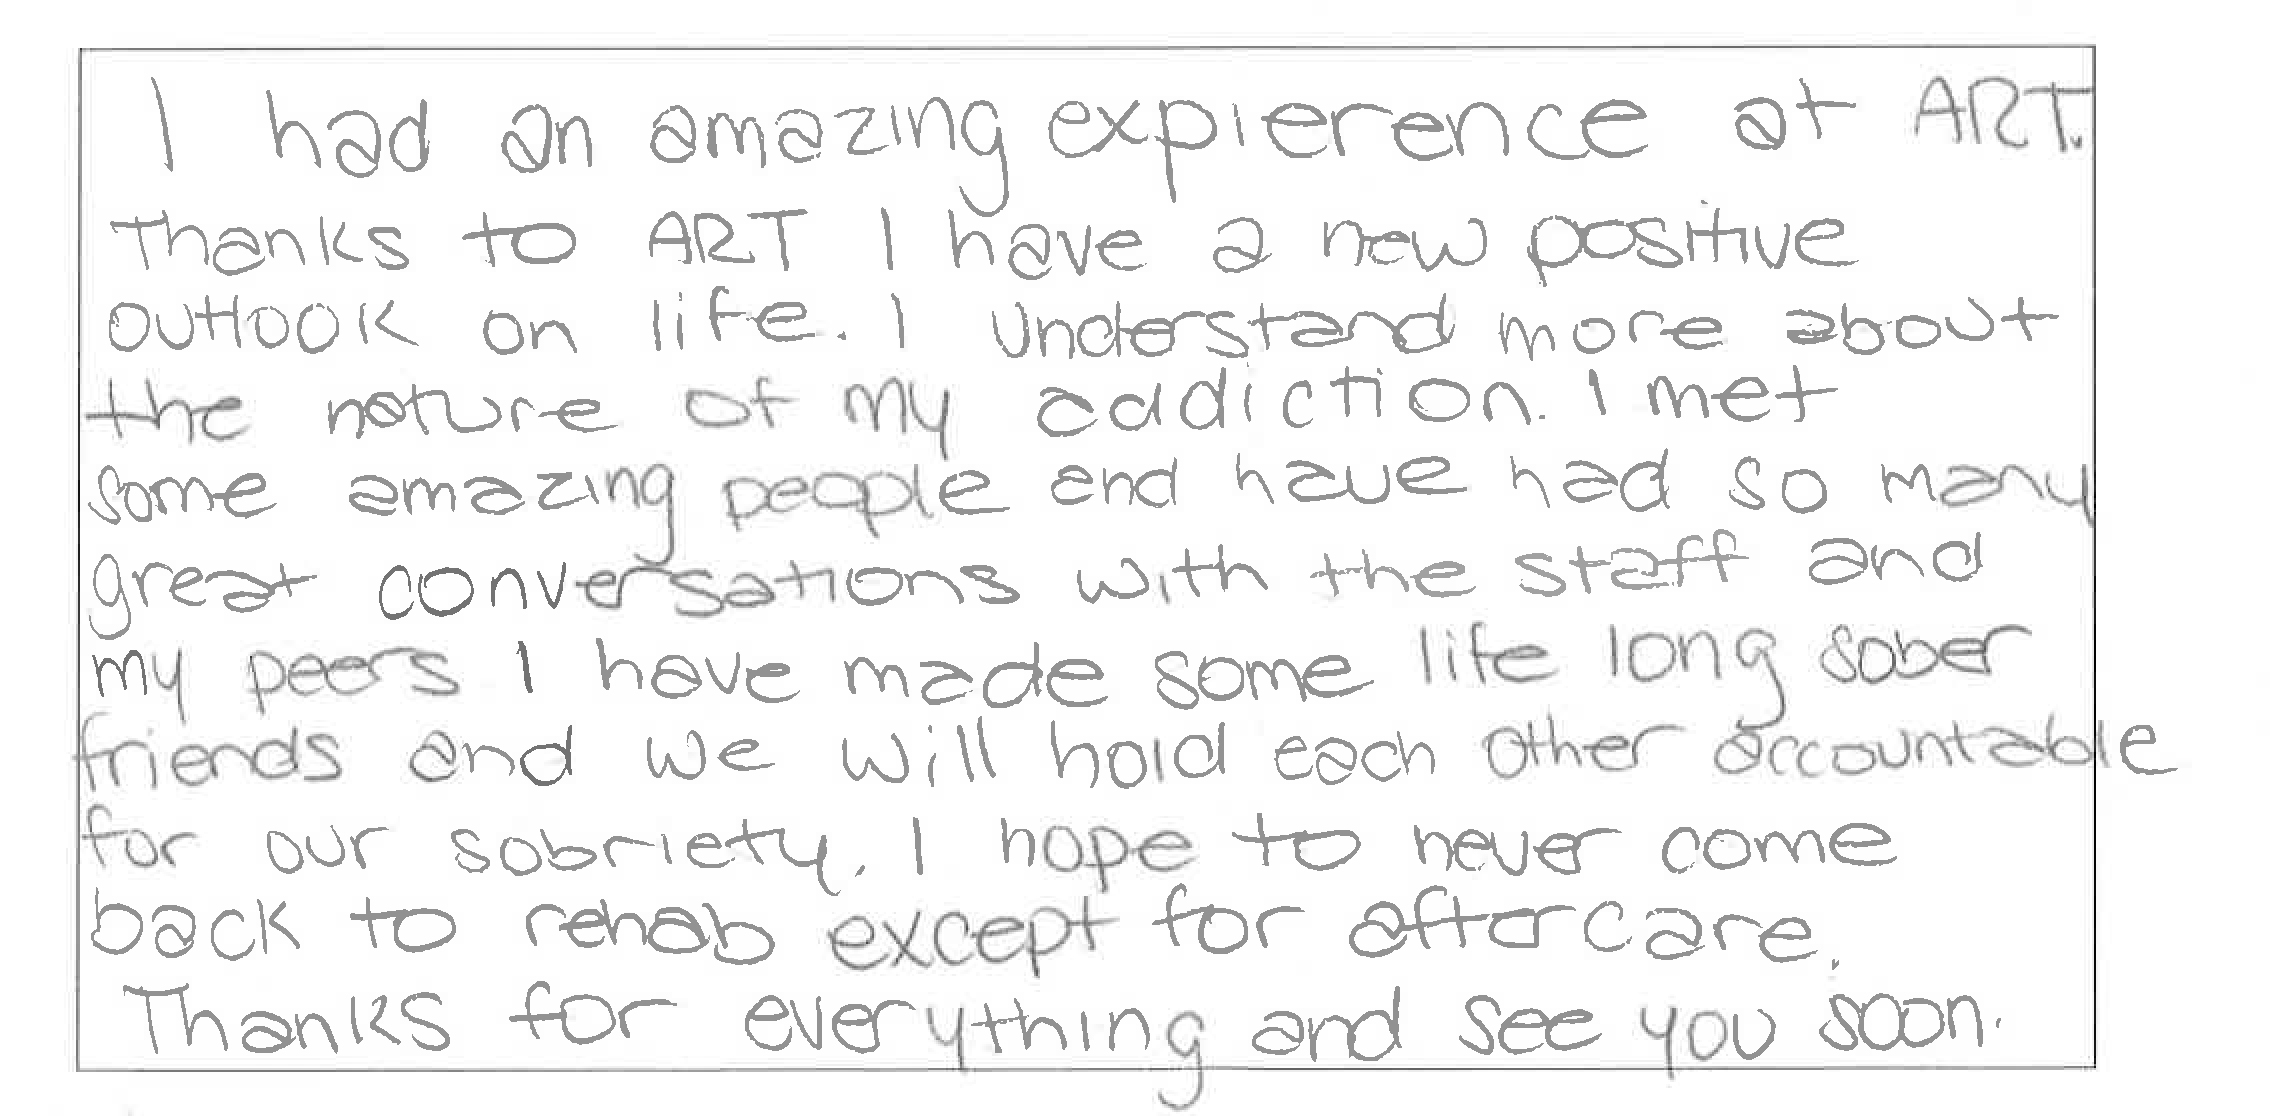 I had an amazing expierence at ART.
Thanks to ART I have a new positive
outlook on life. I understand more about
the nature of my addiction. I met
some amazing people and have had so many
great conversations with the staff and
my peers I have made some life long sober
friends and we will hold each other accountable
for our sobriety. I hope to never come
back to rehab except for aftercare.
Thanks for everything and see you soon.